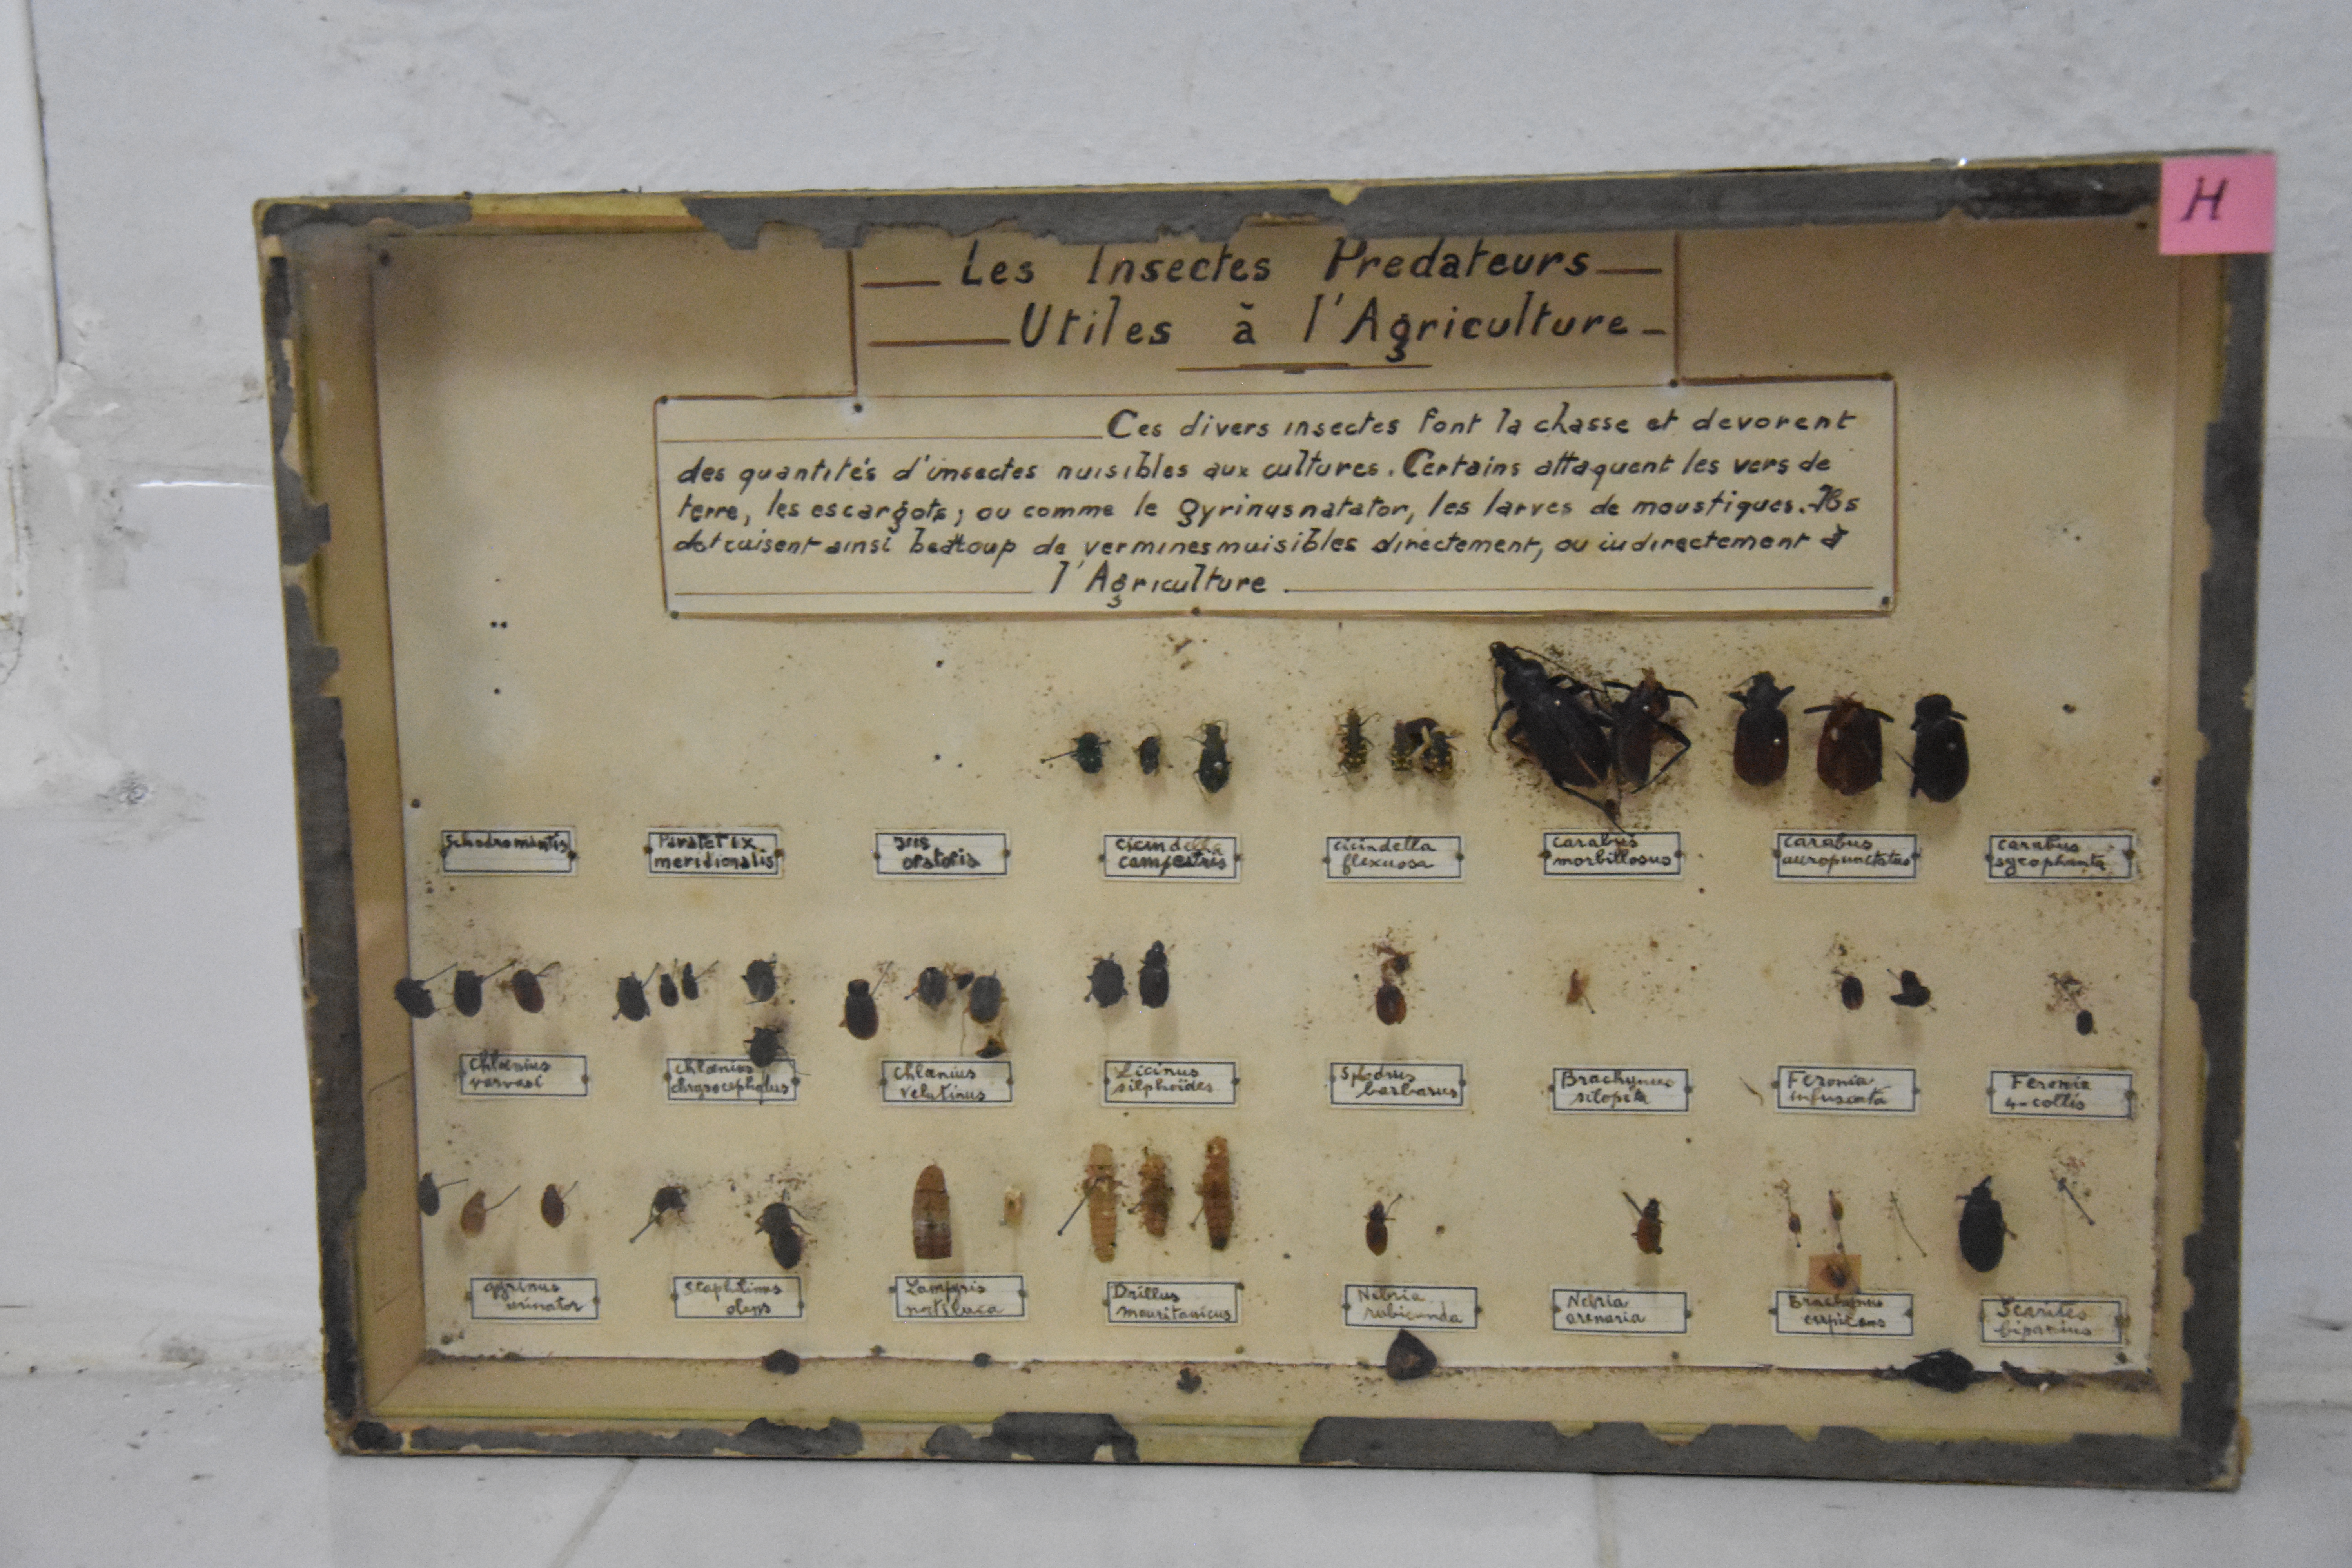 H
Les Insectes Predateurs
Utiles à l'Agriculture
Ces divers insectes font la chasse et devorent
des quantités d'insectes nuisibles aux cultures. Certains attaquent les vers de
terre, les escargots; ou comme le gyrinus natator, les larves de moustiques. Ils
detruisent ainsi beaucoup de vermines nuisibles directement, ou indirectement à
l'Agriculture.
Paratetix
meridionalis
Iris
oratoria
cicindella
campestris
cicindella
flexuosa
carabus
morbillosus
carabus
auropunctatus
carabus
sycophanta
chlænius
chlænius
chrysocephalus
chlænius
velutinus
Licinus
silphoïdes
barbarus
Brachynus
Feronia
infuscata
Feronia
4-collis
gyrinus
urinator
staphilinus
olens
Lampyris
notiluca
Drillus
mauritanicus
Nebria
rubicunda
Nebria
arenaria
Brachynus
Scarites